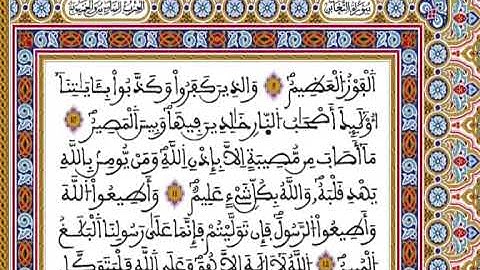 سُورَةُ التَّغَابُن
الحزب السادس والخمسون
اَ۬لْفَوْزُ اُ۬لْعَظِيمُ ٩ وَالذِينَ كَفَرُواْ وَكَذَّبُواْ بِـَٔايَٰتِنَآ
أُوْلَٰٓئِكَ أَصْحَٰبُ اُ۬لنّ۪ارِ خَٰلِدِينَ فِيهَا وَبِيسَ اَ۬لْمَصِيرُ ١٠
مَآ أَصَابَ مِن مُّصِيبَةٍ اِلَّا بِإِذْنِ اِ۬للَّهِ وَمَنْ يُّومِنۢ بِاللَّهِ
يَهْدِ قَلْبَهُۥ وَاللَّهُ بِكُلِّ شَےْءٍ عَلِيمٞ ١١ وَأَطِيعُواْ اُ۬للَّهَ
وَأَطِيعُواْ اُ۬لرَّسُولَ فَإِن تَوَلَّيْتُمْ فَإِنَّمَا عَلَىٰ رَسُولِنَا اَ۬لْبَلَٰغُ
اُ۬لْمُبِينُ ١٢ اَ۬للَّهُ لَآ إِلَٰهَ إِلَّا هُوَ وَعَلَى اَ۬للَّهِ فَلْيَتَوَكَّلِ